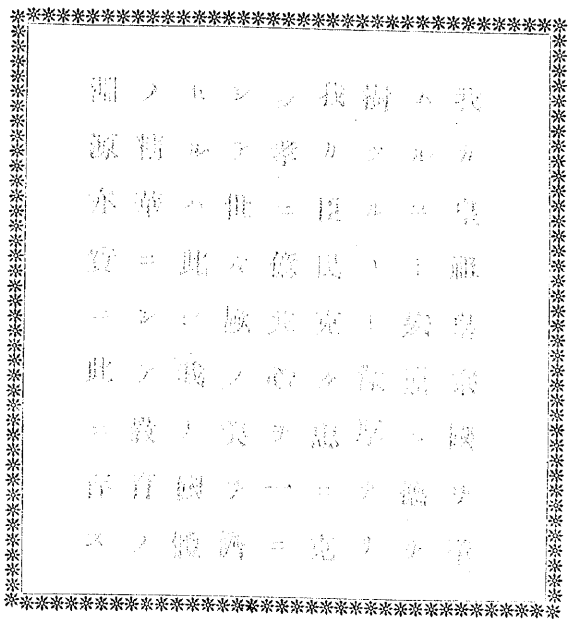 我カ皇祖皇宗國ヲ肇
ムルコト宏遠ニ德ヲ
樹ツルコト深厚ナリ
我カ臣民克ク忠ニ克
ク孝ニ億兆心ヲ一ニ
シテ世々厥ノ美ヲ濟
セルハ此レ我カ國體
ノ精華ニシテ教育ノ
淵源亦實ニ此ニ存ス